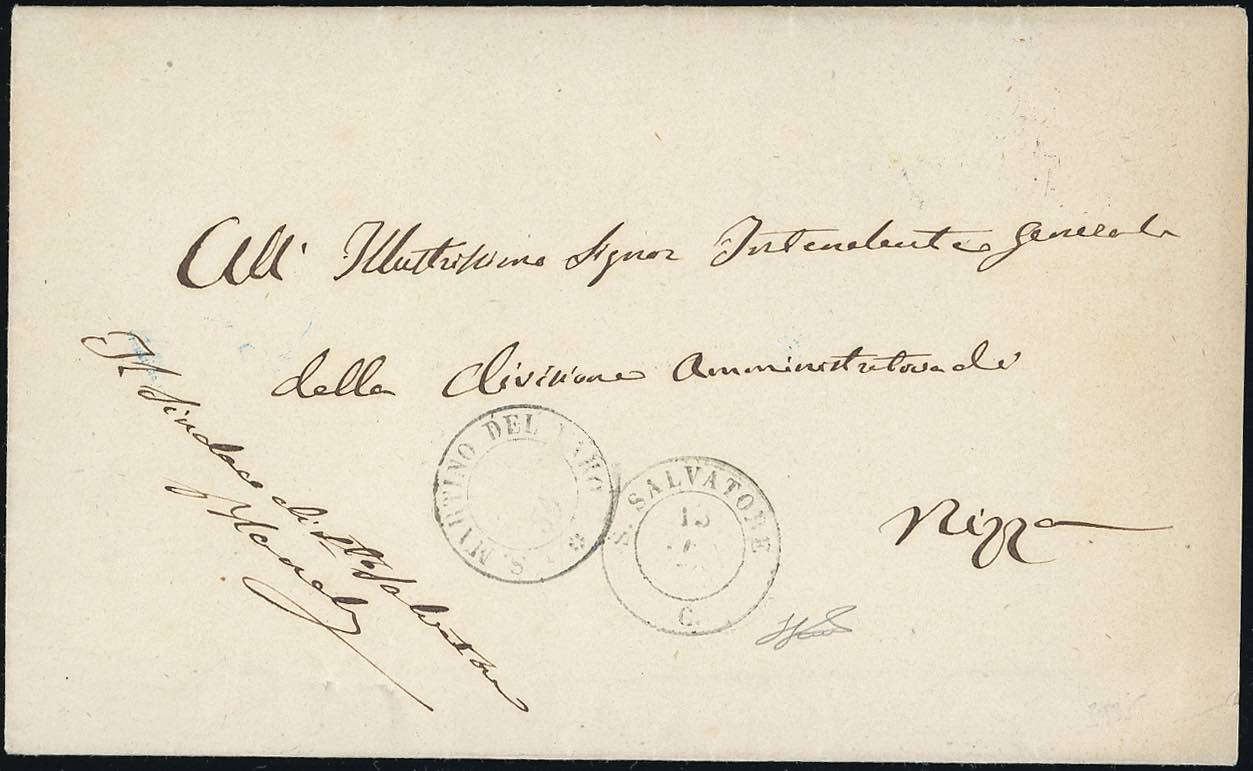 All' Illustrissimo Signor Intendente generale
della divisione amministrativa di
Nizza
Il Sindaco di S. Salvatore
S. MARTINO DEL VARO
S. SALVATORE
13
C.